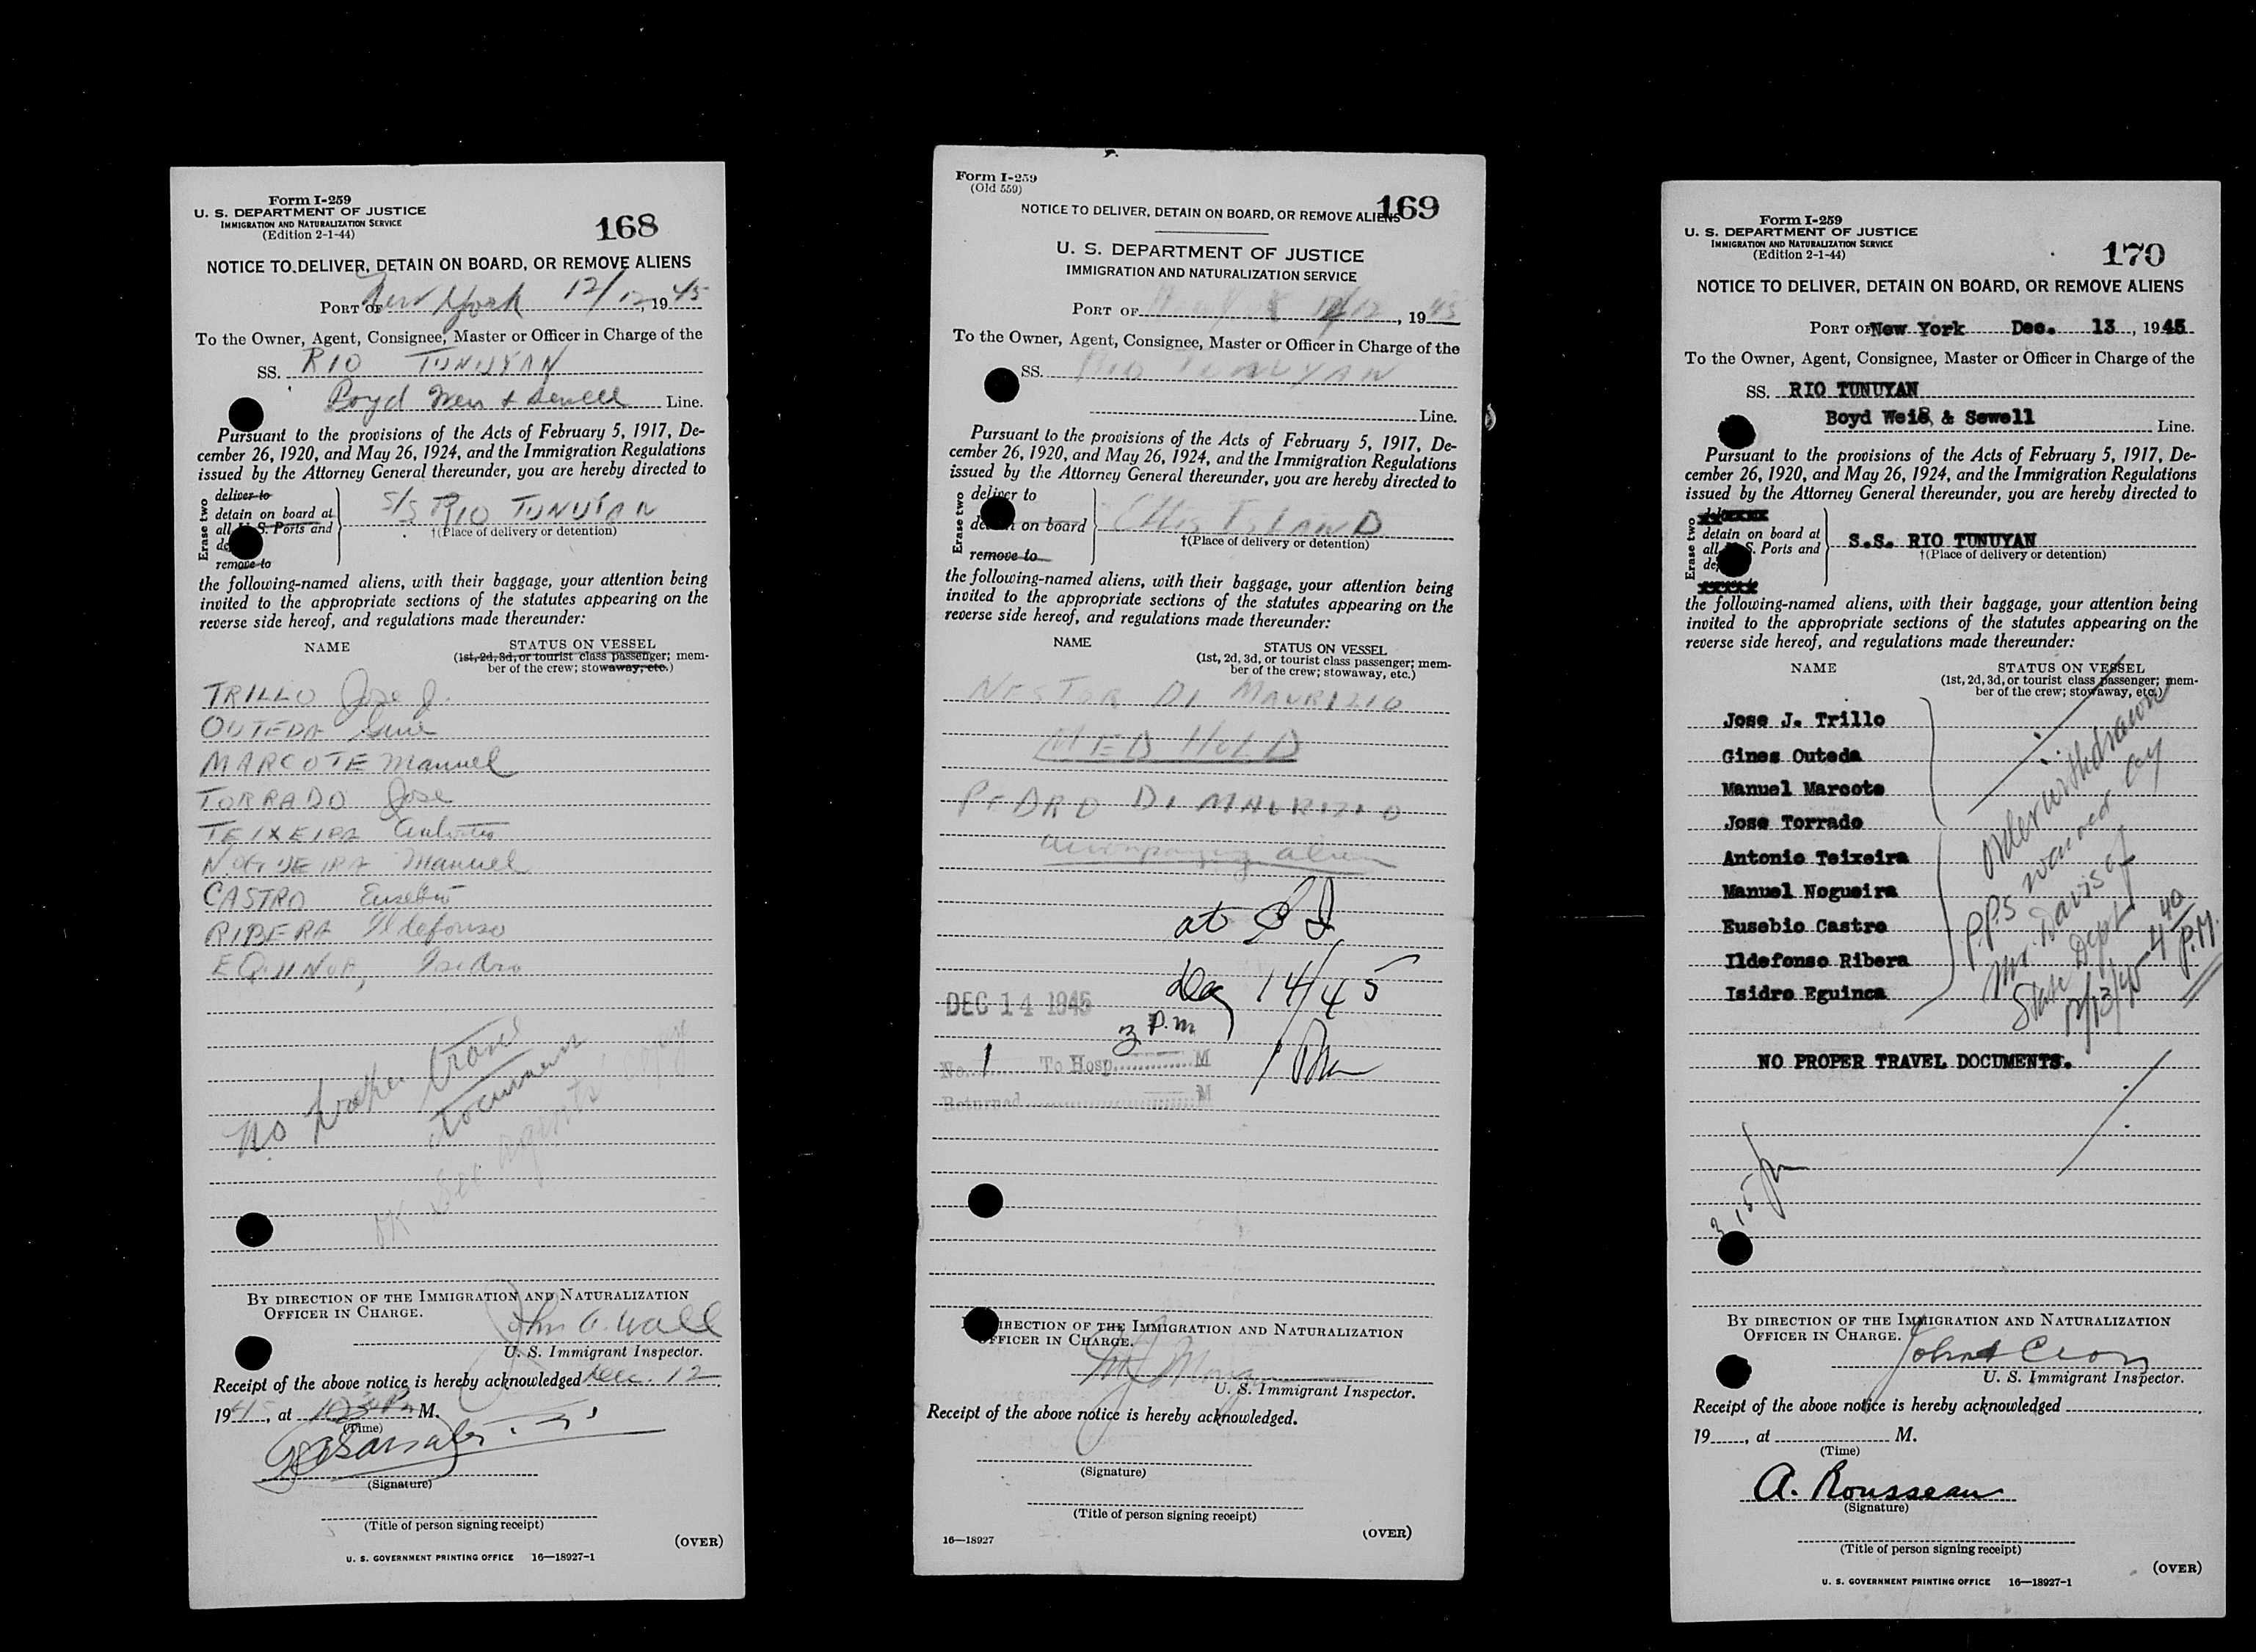 Form I-259
U. S. DEPARTMENT OF JUSTICE
IMMIGRATION AND NATURALIZATION SERVICE
(Edition 2-1-44)
168
NOTICE TO DELIVER, DETAIN ON BOARD, OR REMOVE ALIENS
PORT OF New York 12/12, 1945
To the Owner, Agent, Consignee, Master or Officer in Charge of the
SS. RIO TUNUYAN
Boyd Weir & Sewell Line.
Pursuant to the provisions of the Acts of February 5, 1917, De-
cember 26, 1920, and May 26, 1924, and the Immigration Regulations
issued by the Attorney General thereunder, you are hereby directed to
Erase two
deliver to
detain on board at
all U. S. Ports and
remove to
S/S RIO TUNUYAN
†(Place of delivery or detention)
the following-named aliens, with their baggage, your attention being
invited to the appropriate sections of the statutes appearing on the
reverse side hereof, and regulations made thereunder:
NAME
STATUS ON VESSEL
(1st, 2d, 3d, or tourist class passenger; mem-
ber of the crew; stowaway, etc.)
TRILLO Jose J.
OUTEDA
MARCOTE Manuel
TORRADO Jose
TEIXEIRA Antonio
NOGUEIRA Manuel
CASTRO Eusebio
RIBERA Ildefonso
EQUINOA, Isidro
No proper travel
document
OK See agents copy
BY DIRECTION OF THE IMMIGRATION AND NATURALIZATION
OFFICER IN CHARGE.
John A. Wall
U. S. Immigrant Inspector.
Receipt of the above notice is hereby acknowledged Dec. 12
1945, at M.
(Time)
(Signature)
(Title of person signing receipt)
(OVER)
U. S. GOVERNMENT PRINTING OFFICE 16—18927-1
Form I-259
(Old 559)
169
NOTICE TO DELIVER, DETAIN ON BOARD, OR REMOVE ALIENS
U. S. DEPARTMENT OF JUSTICE
IMMIGRATION AND NATURALIZATION SERVICE
PORT OF 12/12, 1945
To the Owner, Agent, Consignee, Master or Officer in Charge of the
SS. RIO TUNUYAN
Line.
Pursuant to the provisions of the Acts of February 5, 1917, De-
cember 26, 1920, and May 26, 1924, and the Immigration Regulations
issued by the Attorney General thereunder, you are hereby directed to
Erase two
deliver to
detain on board
remove to
Ellis ISLAND
†(Place of delivery or detention)
the following-named aliens, with their baggage, your attention being
invited to the appropriate sections of the statutes appearing on the
reverse side hereof, and regulations made thereunder:
NAME
STATUS ON VESSEL
(1st, 2d, 3d, or tourist class passenger; mem-
ber of the crew; stowaway, etc.)
NESTOR DI MAURIZIO
MED HOLD
PEDRO DI MAURIZIO
accompanying alien
at E I
Dec 14/45
DEC 14 1945
3 P.m
No. 1 To Hosp. M
1 Pm
Returned M
BY DIRECTION OF THE IMMIGRATION AND NATURALIZATION
OFFICER IN CHARGE.
U. S. Immigrant Inspector.
Receipt of the above notice is hereby acknowledged.
(Signature)
(Title of person signing receipt)
16—18927
(OVER)
Form I-259
U. S. DEPARTMENT OF JUSTICE
IMMIGRATION AND NATURALIZATION SERVICE
(Edition 2-1-44)
170
NOTICE TO DELIVER, DETAIN ON BOARD, OR REMOVE ALIENS
PORT OF New York Dec. 13, 1945
To the Owner, Agent, Consignee, Master or Officer in Charge of the
SS. RIO TUNUYAN
Boyd Weir & Sewell Line.
Pursuant to the provisions of the Acts of February 5, 1917, De-
cember 26, 1920, and May 26, 1924, and the Immigration Regulations
issued by the Attorney General thereunder, you are hereby directed to
Erase two
detain on board at
all U. S. Ports and
S.S. RIO TUNUYAN
†(Place of delivery or detention)
the following-named aliens, with their baggage, your attention being
invited to the appropriate sections of the statutes appearing on the
reverse side hereof, and regulations made thereunder:
NAME
STATUS ON VESSEL
(1st, 2d, 3d, or tourist class passenger; mem-
ber of the crew; stowaway, etc.)
Jose J. Trillo
Gines Outeda
Manuel Marcote
Jose Torrado
Antonio Teixeira
Manuel Nogueira
Eusebio Castro
Ildefonso Ribera
Isidro Eguinoa
Order withdrawn
P.P.S waived by
Mr. Davis of
State Dept
12/13/45 4 40 P.M.
NO PROPER TRAVEL DOCUMENTS.
3 15 pm
BY DIRECTION OF THE IMMIGRATION AND NATURALIZATION
OFFICER IN CHARGE.
U. S. Immigrant Inspector.
Receipt of the above notice is hereby acknowledged
19, at M.
(Time)
A. Rousseau
(Signature)
(Title of person signing receipt)
(OVER)
U. S. GOVERNMENT PRINTING OFFICE 16—18927-1